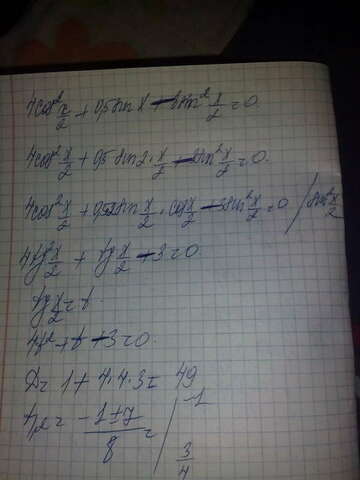 4cos²x/2 + 0,5sin x - 3sin²x/2 = 0.
4cos²x/2 + 0,5 sin2·x/2 - 3sin²x/2 = 0.
4cos²x/2 + 0,5·2sin x/2 · cos x/2 - 3sin²x/2 = 0 / cos²x/2
4tg²x/2 + tg x/2 - 3 = 0.
tg x/2 = t.
4t² + t - 3 = 0.
D = 1 + 4·4·3 = 49
t₁/₂ = (-1±7)/8 = / -1
3/4